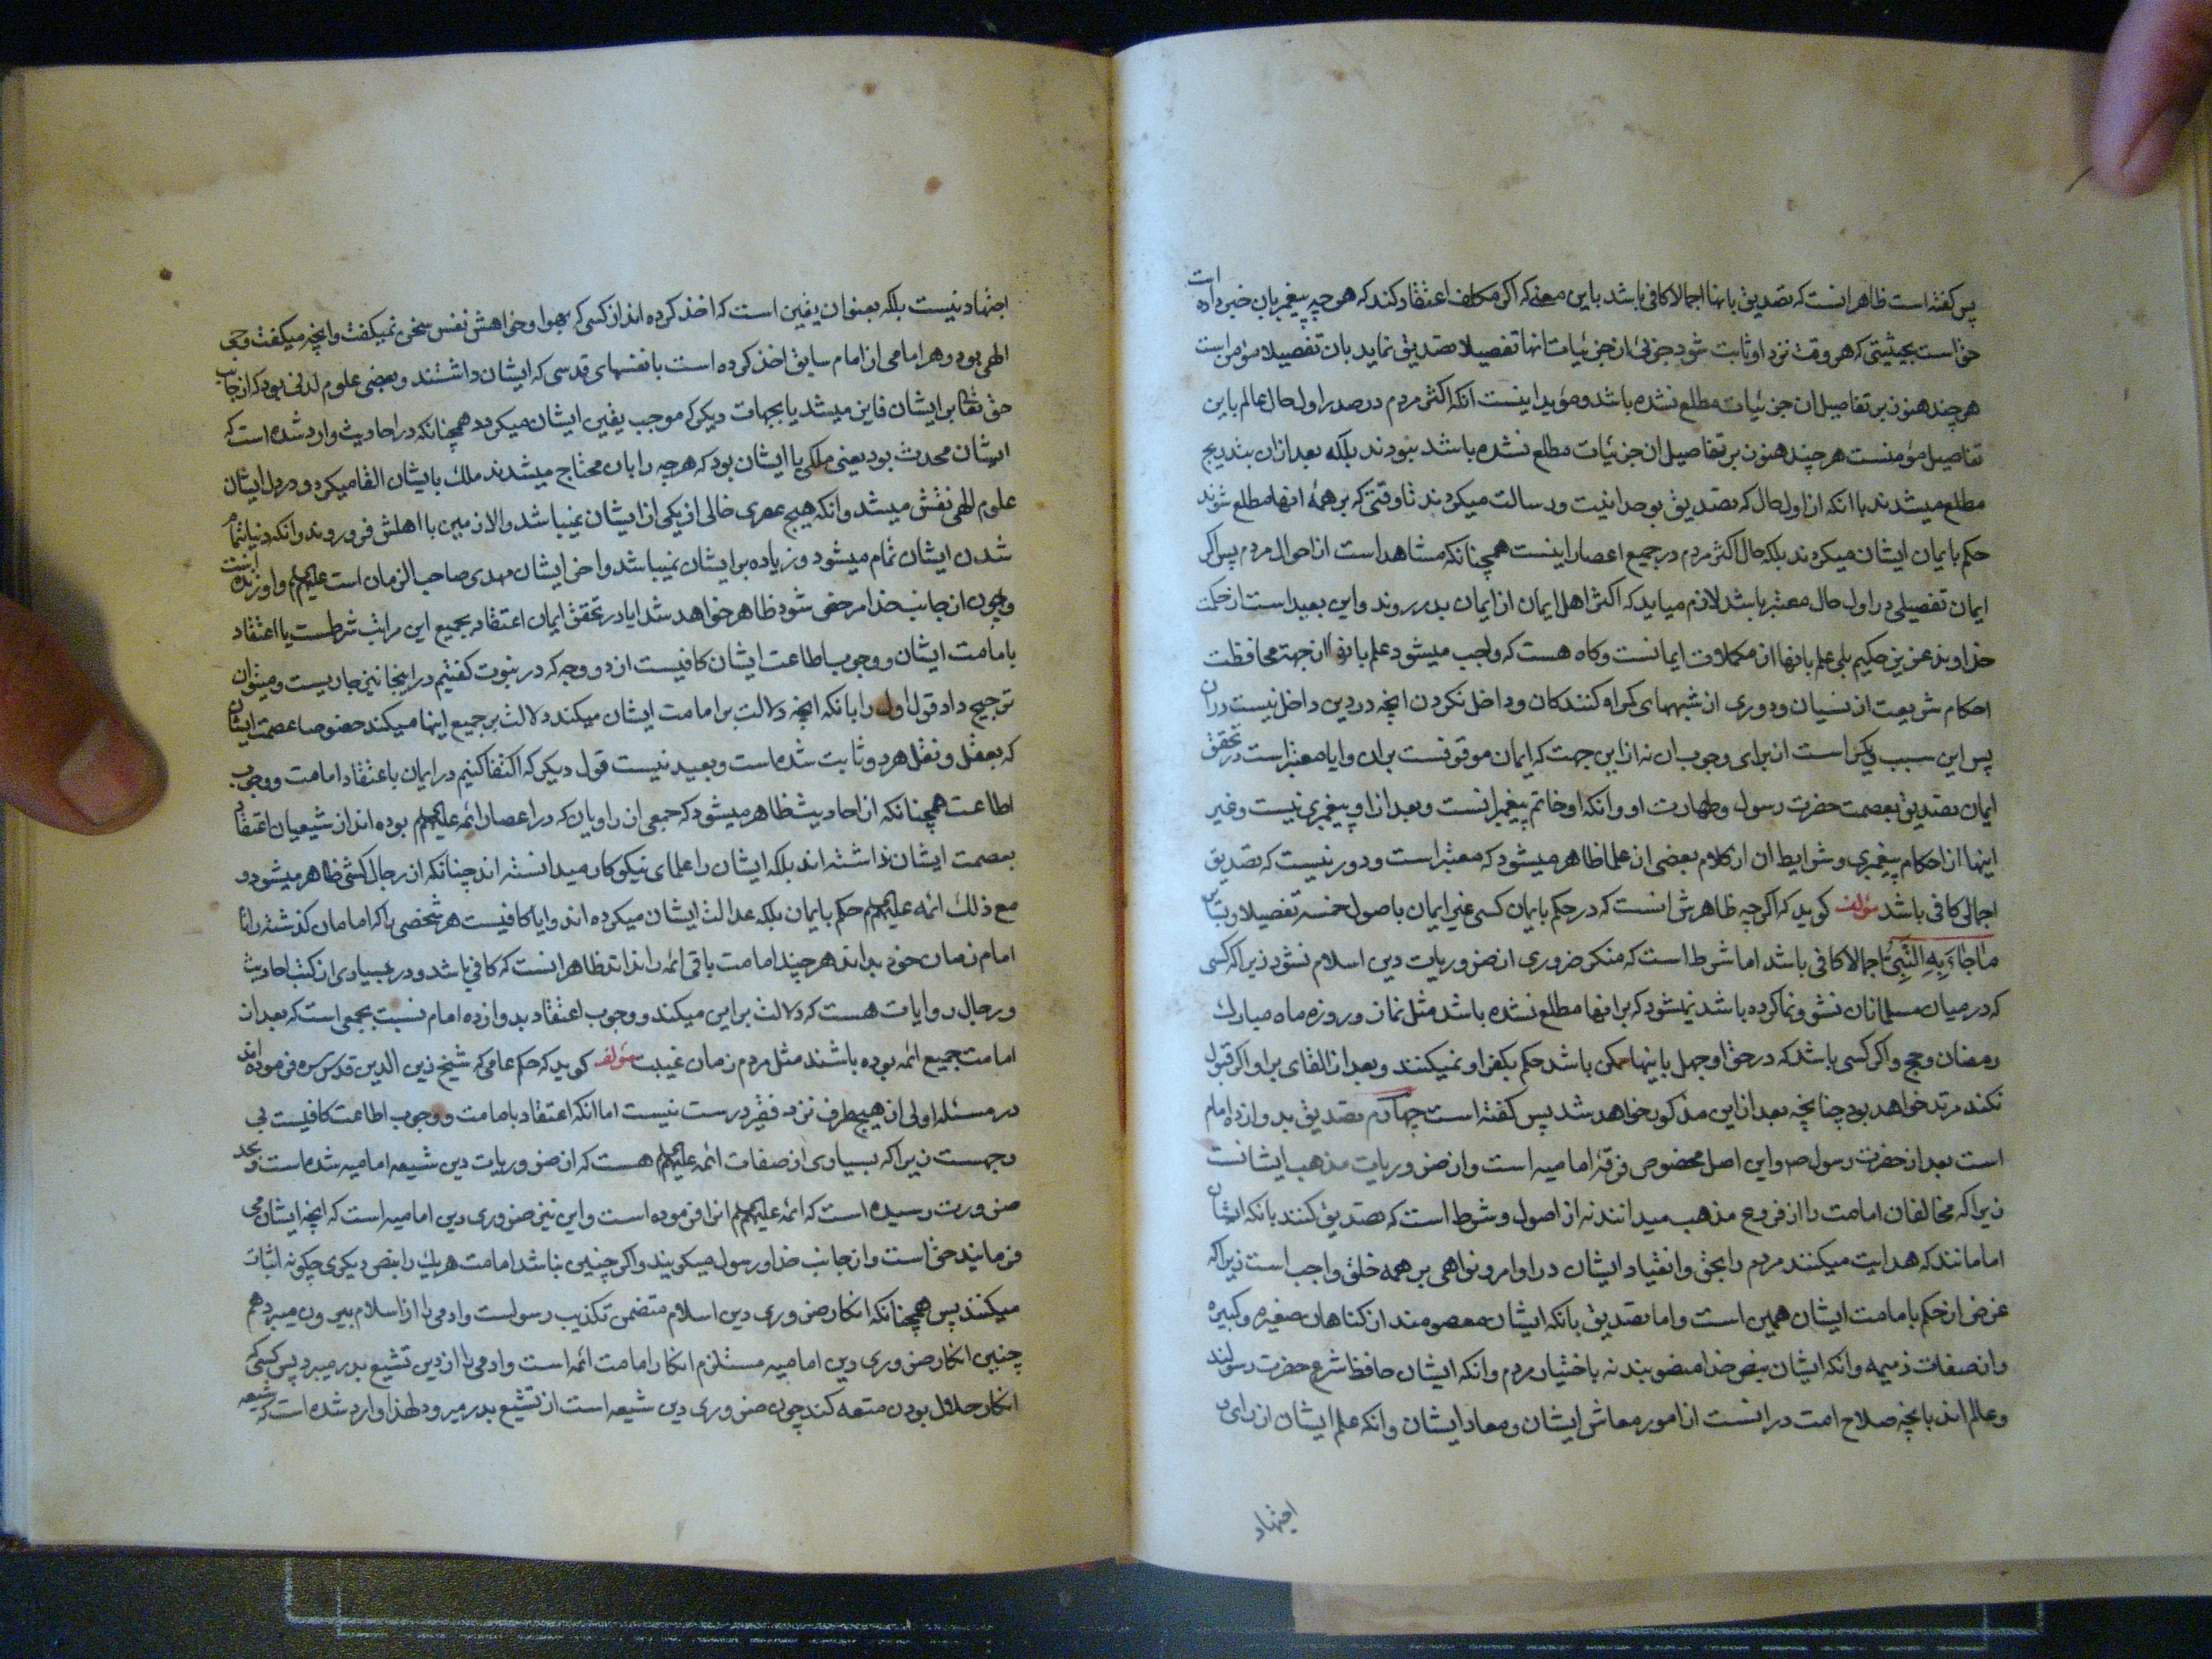 پس گفته است ظاهر انست که تصدیق بانها اجمالا کافی باشد باین معنی که اگر مکلف اعتقاد کند که هر چه پیغمبر بان خبر داده است
حق است بحیثیتی که هر وقت نزد او ثابت شود جزئی از جزئیات انها تفصیلا تصدیق نماید بان تفصیلا مؤمن است
هر چند هنوز بر تفاصیل ان جزئیات مطلع نشده باشد و مؤید اینست انکه اکثر مردم در صدر اول حال عالم باین
تفاصیل مؤمنست هر چند هنوز بر تفاصیل ان جزئیات مطلع نشده باشد نبودند بلکه بعد ازان بتدریج
مطلع میشدند با انکه از اول حال که تصدیق بوحدانیت و رسالت میکردند تا وقتی که بر همه انها مطلع شوند
حکم بایمان ایشان میکردند بلکه حال اکثر مردم در جمیع اعصار اینست همچنانکه مشاهد است از احوال مردم پس اگر
ایمان تفصیلی در اول حال معتبر باشد لازم میاید که اکثر اهل ایمان از ایمان بدر روند و این بعید است از حکمت
خداوند عزیز حکیم بلی علم بانها از مکملات ایمانست و گاه هست که واجب میشود علم بانها از جهة محافظت
احکام شریعت از نسیان و دوری از شبههای گمراه کنندکان و داخل نکردن انچه در دین داخل نیست دران
پس این سبب دیگر است از برای وجوب ان نه از این جهت که ایمان موقوفست بران و ایا معتبر است در تحقق
ایمان تصدیق بعصمت حضرت رسول و طهارت او و انکه او خاتم پیغمبرانست و بعد از او پیغمبری نیست و غیر
اینها از احکام پیغمبری و شرایط ان از کلام بعضی از علما ظاهر میشود که معتبر است و دور نیست که تصدیق
اجمالی کافی باشد مؤلف گوید که اگر چه ظاهرش انست که در حکم بایمان کسی غیر ایمان باصول خمسه تفصیلا و بسایر
ما جاء به النبی اجمالا کافی باشد اما شرط است که منکر ضروری از ضروریات دین اسلام نشود زیرا که کسی
که در میان مسلمانان نشو و نما کرده باشد نمیشود که بر انها مطلع نشده باشد مثل نماز و روزه ماه مبارک
رمضان و حج و اگر کسی باشد که در حق او جهل باینها ممکن باشد حکم بکفر او نمیکنند و بعد از القای بر او اگر قبول
نکند مرتد خواهد بود چنانچه بعد از این مذکور خواهد شد پس گفته است چهارم تصدیق بدوازده امام
است بعد از حضرت رسول ص و این اصل مخصوص فرقه امامیه است و از ضروریات مذهب ایشانست
زیرا که مخالفان امامت را از فروع مذهب میدانند نه از اصول و شرط است که تصدیق کنند بانکه ایشان
امامانند که هدایت میکنند مردم را بحق و انقیاد ایشان در اوامر و نواهی بر همه خلق واجب است زیرا که
غرض از حکم بامامت ایشان همین است و اما تصدیق بانکه ایشان معصومند از گناهان صغیره و کبیره
و از صفات ذمیمه و انکه ایشان بنص خدا منصوبند نه باختیار مردم و انکه ایشان حافظ شرع حضرت رسولند
و عالم اند بانچه صلاح امت در انست از امور معاش ایشان و معاد ایشان و انکه علم ایشان از رای و
اجتهاد
اجتهاد نیست بلکه بعنوان یقین است که اخذ کرده اند از کسی که بهوا و خواهش نفس سخن نمیگفت و انچه میگفت وحی
الهی بود و هر امامی از امام سابق اخذ کرده است با نفسهای قدسی که ایشان داشتند و بعضی علوم لدنی بود که از جانب
حق تعالی بر ایشان فایز میشد یا بجهات دیگر که موجب یقین ایشان میگردد همچنانکه در احادیث وارد شده است که
ایشان محدث بود یعنی ملکی با ایشان بود که هر چه را بان محتاج میشدند ملک بایشان القا میکرد و در دل ایشان
علوم الهی نقش میشد و انکه هیچ عصری خالی از یکی از ایشان نمیباشد و الا زمین با اهلش فرو رود و انکه دنیا بتمام
شدن ایشان تمام میشود و زیاده بر ایشان نمیباشد و اخر ایشان مهدی صاحب الزمان است علیهم و او زنده است
و چون از جانب خدا مرخص شود ظاهر خواهد شد ایا در تحقق ایمان اعتقاد بجمیع این مراتب شرطست یا اعتقاد
بامامت ایشان و وجوب اطاعت ایشان کافیست از دو وجه که در نبوت گفتیم در اینجا نیز جاریست و میتوان
ترجیح داد قول اول را بانکه انچه دلالت بر امامت ایشان میکند دلالت بر جمیع اینها میکند خصوصا عصمت ایشان
که بعقل و نقل هر دو ثابت شده است و بعید نیست قول دیگر که اکتفا کنیم در ایمان باعتقاد امامت و وجوب
اطاعت همچنانکه از احادیث ظاهر میشود که جمعی از راویان که در اعصار ائمه علیهم بوده اند از شیعیان اعتقاد
بعصمت ایشان نداشته اند بلکه ایشان را علمای نیکوکار میدانسته اند چنانکه از رجال کشی ظاهر میشود و
مع ذلک ائمه علیهم حکم بایمان بلکه عدالت ایشان میکرده اند و ایا کافیست هر شخصی را که امامان گذشته را تا
امام زمان خود بداند هر چند امامت باقی ائمه را نداند ظاهر انست که کافی باشد و در بسیاری از کتب احادیث
و رجال روایات هست که دلالت بر این میکند و وجوب اعتقاد بدوازده امام نسبت بجمعی است که بعد از
امامت جمیع ائمه بوده باشند مثل مردم زمان غیبت مؤلف گوید که حکم عامی که شیخ زین الدین قدس سره فرموده اند
در مسئله اولی از هیچ طرف نزد فقیر درست نیست اما انکه اعتقاد بامامت و وجوب اطاعت کافیست بی
وجهست زیرا که بسیاری از صفات ائمه علیهم هست که از ضروریات دین شیعه امامیه شده است و بحد
ضرورت رسیده است که ائمه علیهم انرا فرموده است و این نیز ضروری دین امامیه است که انچه ایشان می
فرمایند حق است و از جانب خدا و رسول میگویند و اگر چنین نباشد امامت هر یک را بنص دیگری چگونه اثبات
میکنند پس همچنانکه انکار ضروری دین اسلام متضمن تکذیب رسولست و ادمی را از اسلام بیرون میبرد هم
چنین انکار ضروری دین امامیه مستلزم انکار امامت ائمه است و ادمی را از دین تشیع بدر میبرد پس کسی که
انکار حلال بودن متعه کند چون ضروری دین شیعه است از تشیع بدر میرود لهذا وارد شده است که شیعه